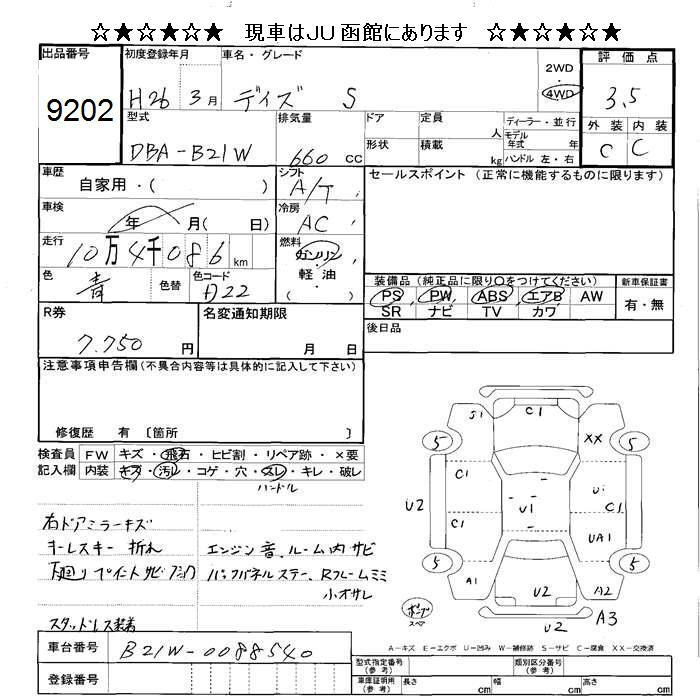 ☆★☆★☆★ 現車はJU函館にあります ☆★☆★☆★
出品番号 初度登録年月 車名・グレード 2WD 評価点
9202 H26 3月 デイズ S 4WD 3.5
型式 排気量 ドア 定員 人 ディーラー・並行 外装 内装
DBA-B21W 660 cc 形状 積載 kg モデル年式 年 ハンドル 左・右 C C
車歴 シフト セールスポイント (正常に機能するものに限ります)
自家用・( ) A/T
車検 冷房
年 月( 日) AC
走行 燃料
10万4千086 km ガソリン
色 色替 色コード 軽油
青 A22 ( )
装備品 (純正品に限り○をつけてください) 新車保証書
PS PW ABS エアB AW 有・無
SR ナビ TV カワ
R券 名変通知期限 後日品
7.750 円 月 日
注意事項申告欄(不具合内容等は具体的に記入して下さい)
修復歴 有 〔箇所 〕
検査員 FW キズ・飛石・ヒビ割・リペア跡・×要
記入欄 内装 キズ・汚レ・コゲ・穴・スレ・キレ・破レ
ハンドル
右ドアミラーキズ
キーレスキー 折れ エンジン音、ルーム内サビ
下廻りペイントサビ バックパネルステー、Rフーム
小オサレ
スタッドレス装着
S1 C1 XX
5 5
C1 U1 C1
U2 U1
C1 UA1
5 5
A1 U2 A2
スペア A3
U2
A-キズ E-エクボ U-凹み W-補修跡 S-サビ C-腐食 XX-交換済
車台番号 B21W-0088540
登録番号
型式指定番号(参考) 類別区分番号(参考)
車庫証明用(参考) 長さ cm 幅 cm 高さ cm